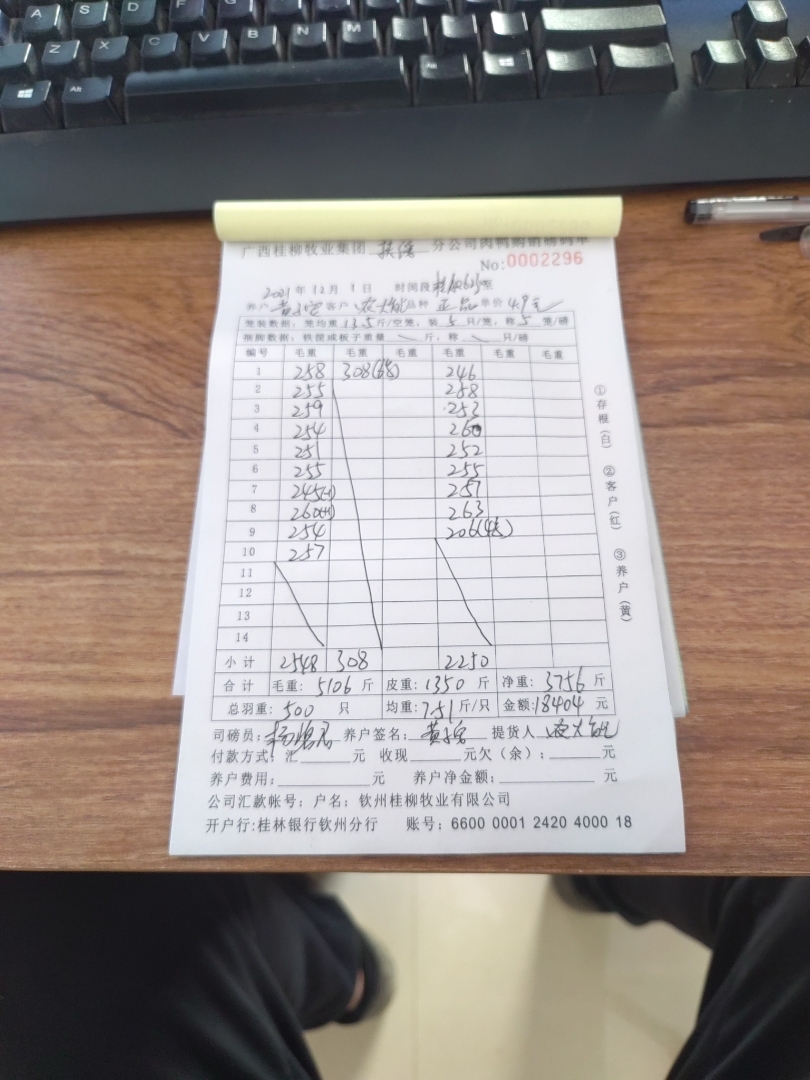 广西桂柳牧业集团 扶绥 分公司肉鸭购销磅码单
No:0002296
2021年12月1日 时间段
养户 客户 农大能 品种 正品 单价 4.9元
笼装数据：笼均重 13.5 斤/空笼，装 5 只/笼，称 5 笼/磅
捆脚数据：铁捏或板子重量 \ 斤，称 \ 只/磅
编号 毛重 毛重 毛重 毛重 毛重 毛重
1 258 308(6笼) 246
2 255 258
3 259 253
4 254 260
5 251 252
6 255 255
7 245(-1) 257
8 260(+1) 263
9 254 206(4笼)
10 257
11
12
13
14
小计 2548 308 2250
合计 毛重：5106 斤 皮重：1350 斤 净重：3756 斤
总羽重：500 只 均重：7.51 斤/只 金额：18404 元
司磅员： 养户签名： 提货人 农大能
付款方式：汇 元 收现 元欠（余）： 元
养户费用： 元 养户净金额： 元
公司汇款帐号：户名：钦州桂柳牧业有限公司
开户行:桂林银行钦州分行 账号：6600 0001 2420 4000 18
①存根（白） ②客户（红） ③养户（黄）